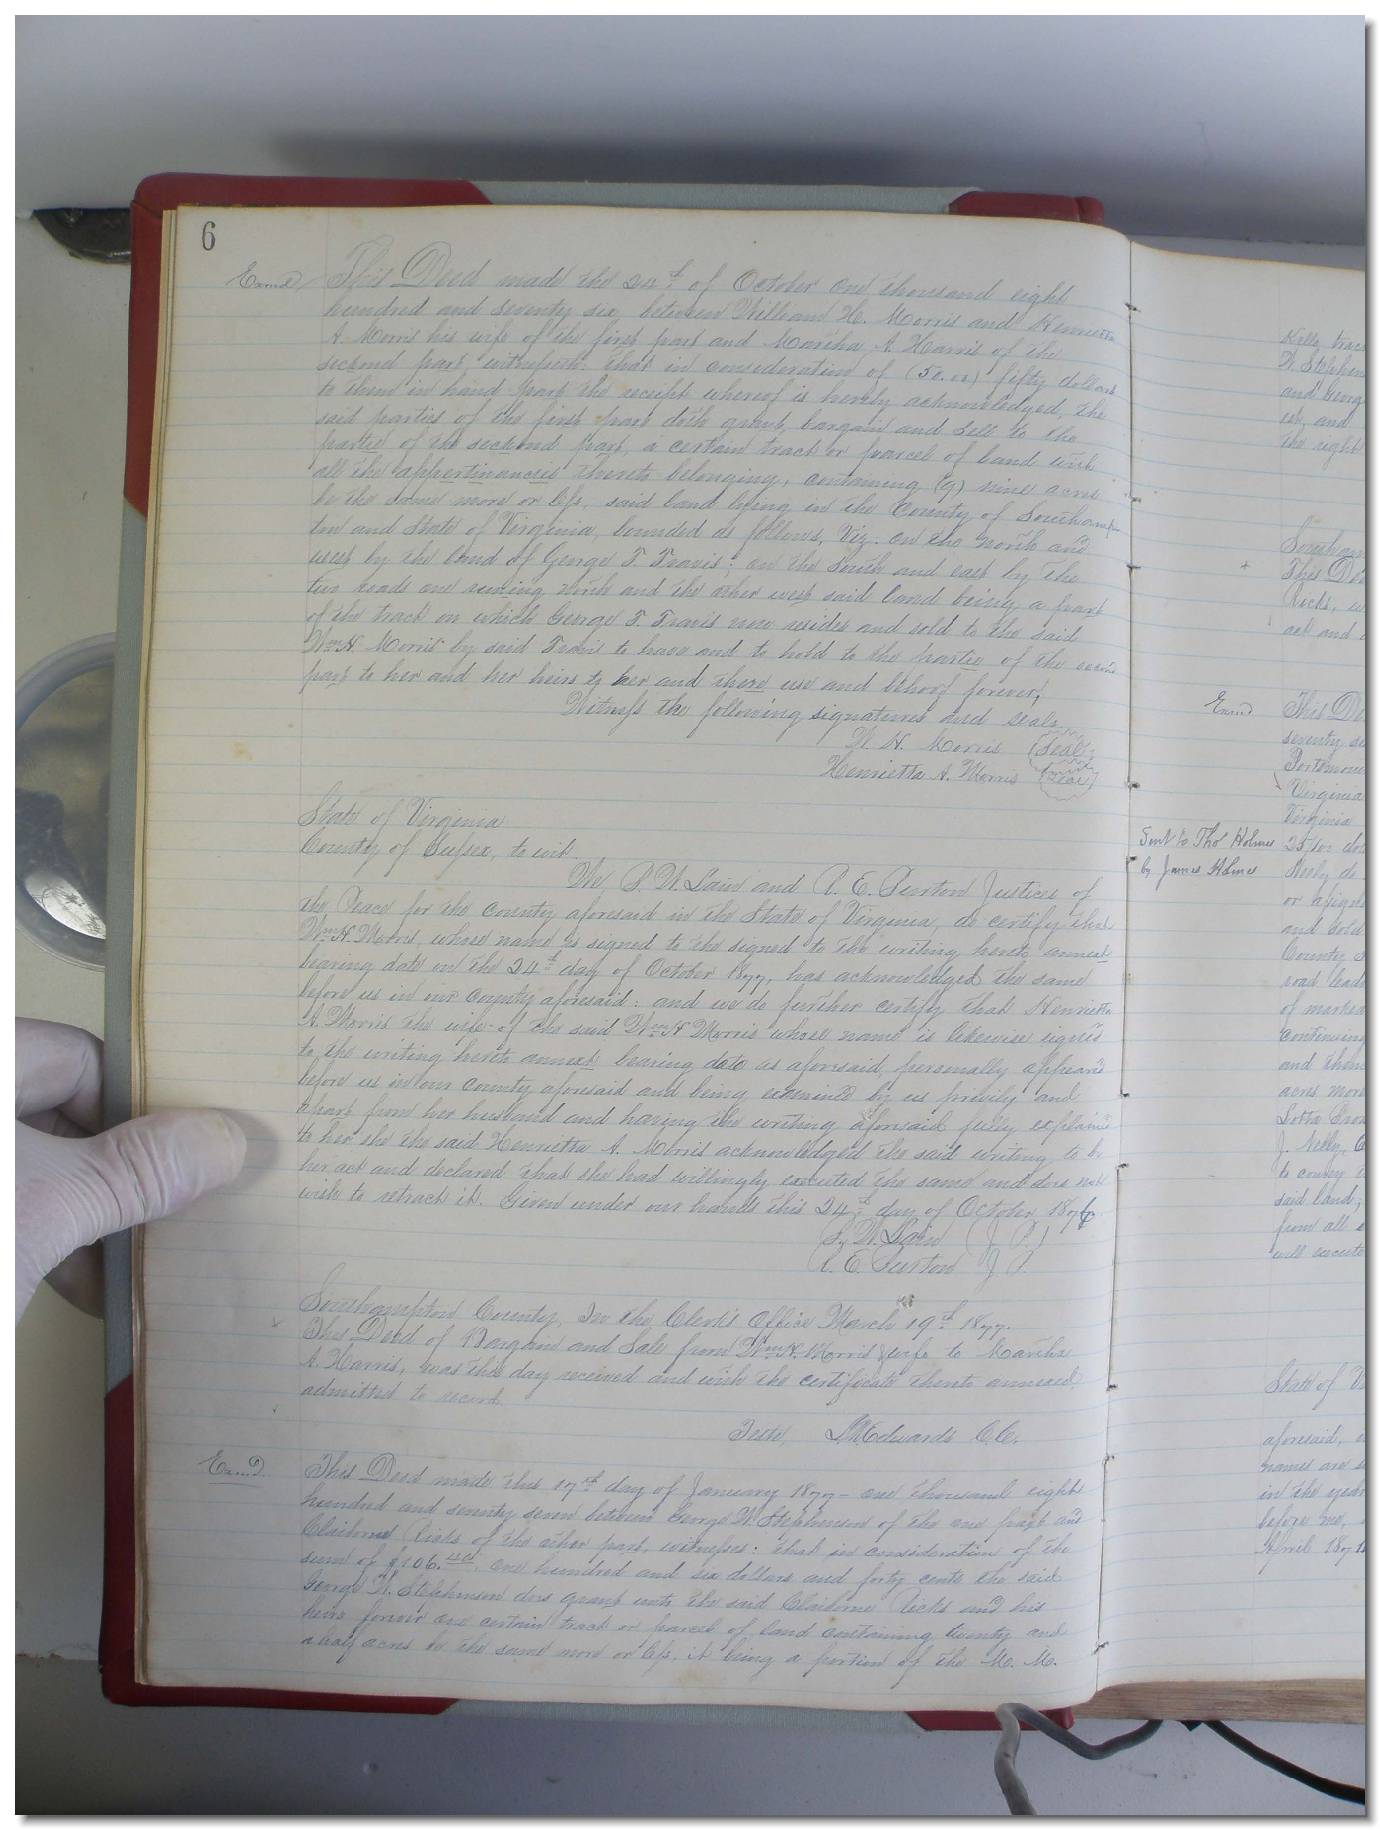 6
Exmd
This Deed made the 24th of October one thousand eight
hundred and seventy six, between William H. Morris and Henrietta
A. Morris his wife of the first part and Martha A. Harris of the
second part, witnesseth: that in consideration of (50.00) fifty dollars
to them in hand paid the receipt whereof is hereby acknowledged, the
said parties of the first part doth grant, bargain and sell to the
partie of the second part, a certain tract or parcel of land with
all the appertinancies thereto belonging, containing (9) nine acres
be the same more or less, said land lying in the County of Southamp-
ton and State of Virginia, bounded as follows, Viz. on the north and
west by the land of George T. Travis; on the South and east by the
two roads one runing north and the other west said land being a part
of the track on which George T. Travis now resides and sold to the said
Wm H. Morris by said Travis to have and to hold to the partie of the second
part to her and her heirs to her and there use and behoof forever,
Witness the following signatures and seals.
W. H. Morris (Seal)
Henrietta A. Morris (Seal)
State of Virginia
County of Sussex, to wit.
We, S. W. Lain and R. E. Purton Justices of
the Peace for the county aforesaid in the State of Virginia, do certify that
Wm H. Morris, whose name is signed to the signed to the writing hereto annext
bearing date on the 24th day of October 1877, has acknowledged the same
before us in our County aforesaid: and we do further certify that Henrietta
A. Morris the wife of the said Wm H Morris whose name is likewise signed
to the writing hereto annext bearing date as aforesaid, personally appeard
before us in our county aforesaid and being examined by us privily and
apart from her husband and having the writing aforesaid fully explained
to her she the said Henrietta A. Morris acknowledged the said writing to be
her act and declared that she had willingly executed the same and does not
wish to retract it. Given under our hands this 24th day of October 1876
S. W. Lain (J. P.)
R. E. Purton J P.
Southampton County, In the Clerk's Office March 19th 1877.
This Deed of Bargain and Sale from Wm H. Morris & wife to Martha
A. Harris, was this day received and with the certificate thereto annexed
admitted to record.
Teste, Edwards C.C.
Exmd
This Deed made this 17th day of January 1877 - one thousand eight
hundred and seventy seven between George W. Stephenson of the one part and
Claiborne Ricks of the other part, witnesses: that in consideration of the
sum of $106.40 one hundred and six dollars and forty cents the said
George W. Stephenson does grant unto the said Claiborne Ricks and his
heirs forever one certain track or parcel of land containing twenty and
a half acres be the same more or less, it being a portion of the M. M.
Kelly trac
W Stephen
and Georg
us, and
the right
Southam
This De
Ricks, w
act and
Exmd
This De
seventy se
Portsmou
Virginia
Virginia
Sent to Tho Holmes
by James Holmes
25/100 do
Neely do
or assigns
and sold
County
road lead
of marked
continuing
and then
acres more
Lotta Cro
J. Neely,
to convey
said land,
from all
will execute
State of V
aforesaid,
names are s
in the year
before me,
April 187